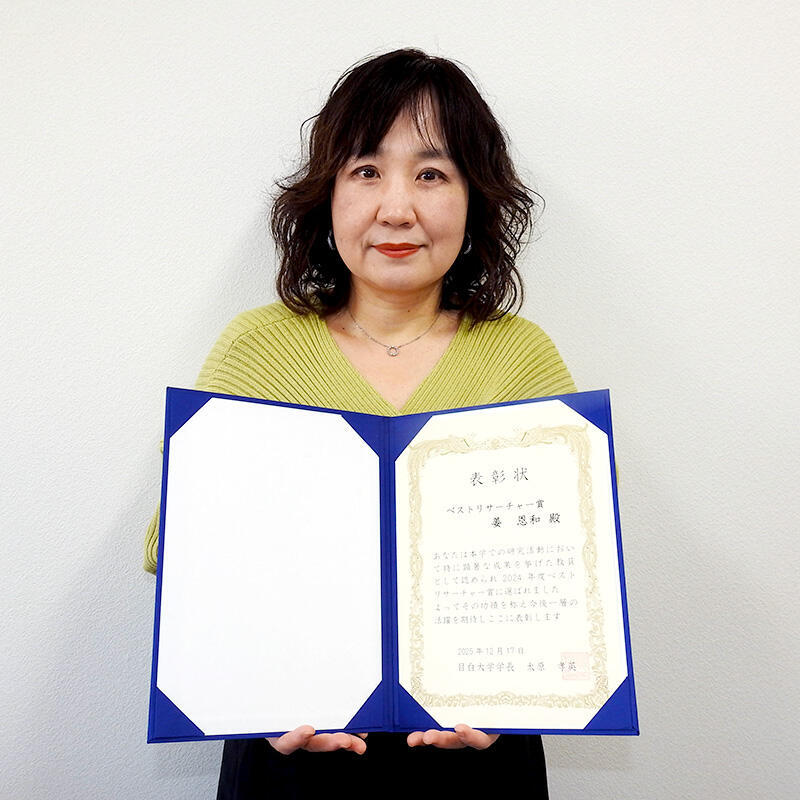 表彰状
ベストリサーチャー賞
姜 恩和 殿
あなたは本学での研究活動におい
て特に顕著な成果を挙げた教員
として認められ2024年度ベスト
リサーチャー賞に選ばれました
よってその功績を称え今後一層の
活躍を期待しここに表彰します
2025年12月17日
目白大学学長 太原 孝英